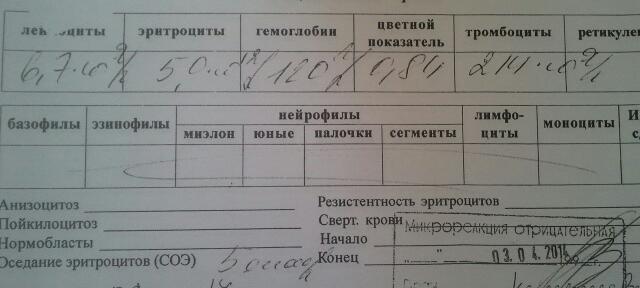 лейкоциты эритроциты гемоглобин цветной показатель тромбоциты ретикуле
6,7·10⁹/л 5,0·10¹²/л 120 г/л 0,84 214·10⁹/л
базофилы эзинофилы нейрофилы лимфо-циты моноциты
миэлон юные палочки сегменты
Анизоцитоз Резистентность эритроцитов
Пойкилоцитоз Сверт. крови Микрореакция отрицательная
Нормобласты Начало
Оседание эритроцитов (СОЭ) 5 Конец 03.04.